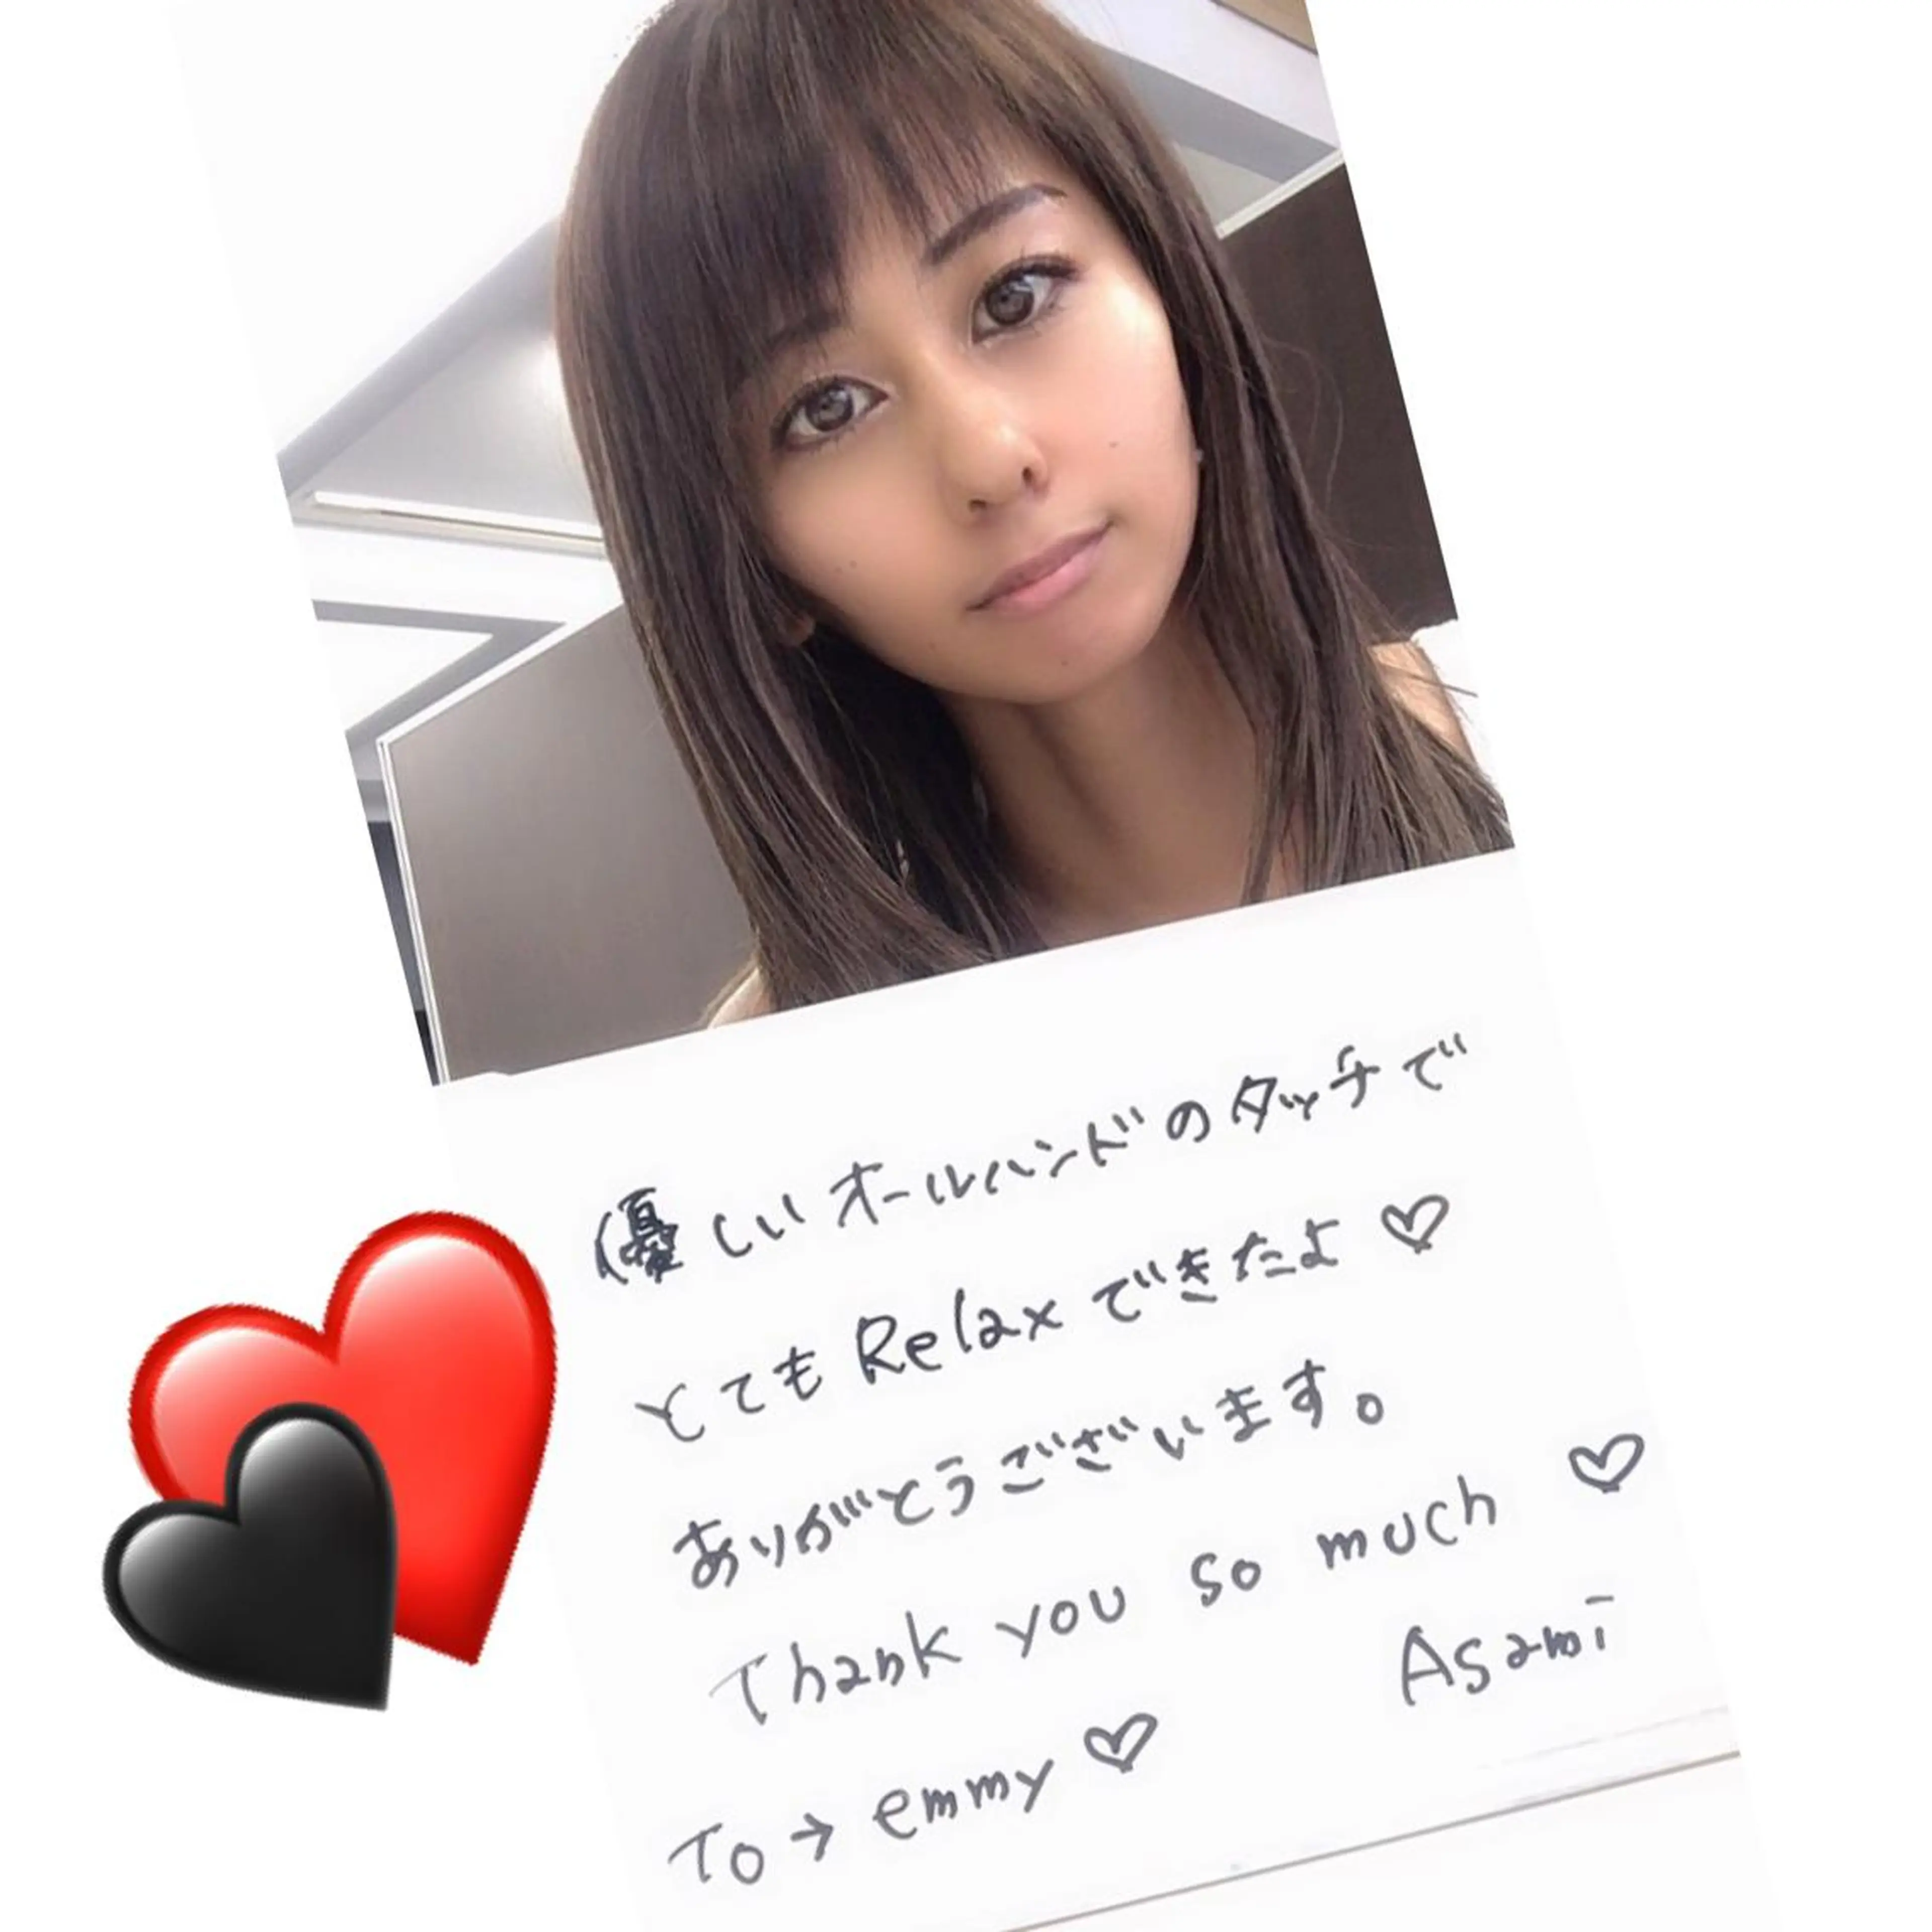 優しいオールハンドのタッチで
とてもRelaxできたよ♡
ありがとうございます。
Thank you so much ♡
Asami
To→ emmy♡